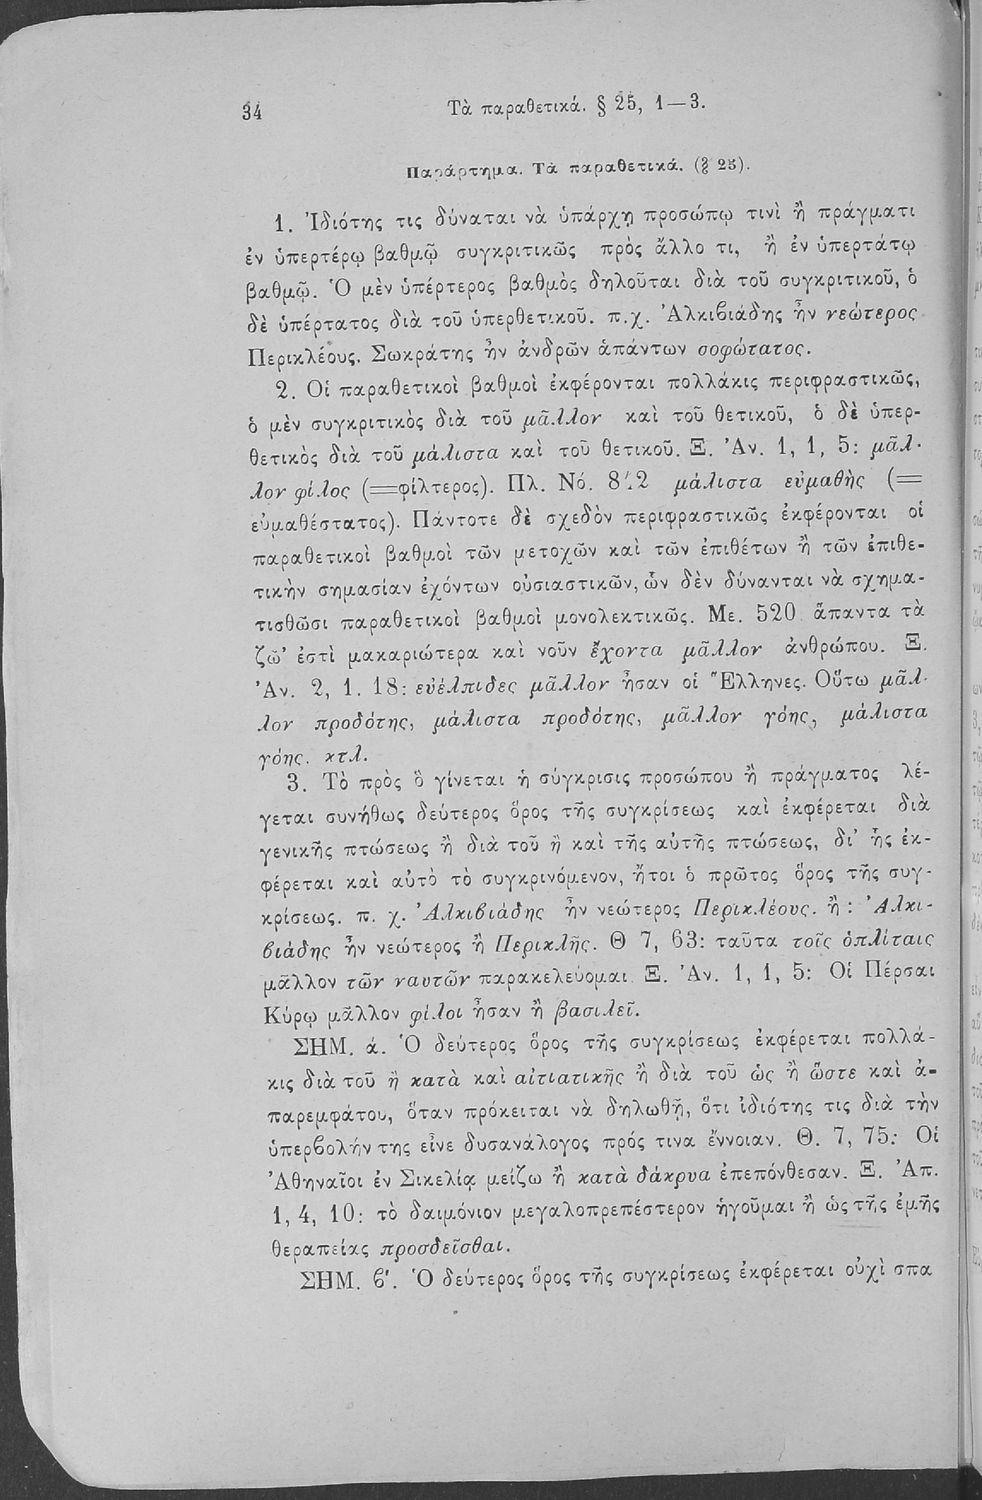 34 Τὰ παραθετικά. § 25, 1—3.
Παράρτημα. Τὰ παραθετικά. (§ 25).
1. Ἰδιότης τις δύναται νὰ ὑπάρχῃ προσώπῳ τινὶ ἢ πράγματι
ἐν ὑπερτέρῳ βαθμῷ συγκριτικῶς πρὸς ἄλλο τι, ἢ ἐν ὑπερτάτῳ
βαθμῷ. Ὁ μὲν ὑπέρτερος βαθμὸς δηλοῦται διὰ τοῦ συγκριτικοῦ, ὁ
δὲ ὑπέρτατος διὰ τοῦ ὑπερθετικοῦ. π.χ. Ἀλκιβιάδης ἦν νεώτερος
Περικλέους. Σωκράτης ἦν ἀνδρῶν ἁπάντων σοφώτατος.
2. Οἱ παραθετικοὶ βαθμοὶ ἐκφέρονται πολλάκις περιφραστικῶς,
ὁ μὲν συγκριτικὸς διὰ τοῦ μᾶλλον καὶ τοῦ θετικοῦ, ὁ δὲ ὑπερ-
θετικὸς διὰ τοῦ μάλιστα καὶ τοῦ θετικοῦ. Ξ. Ἀν. 1, 1, 5: μᾶλ-
λον φίλος (=φίλτερος). Πλ. Νό. μάλιστα εὐμαθὴς (=
εὐμαθέστατος). Πάντοτε δὲ σχεδὸν περιφραστικῶς ἐκφέρονται οἱ
παραθετικοὶ βαθμοὶ τῶν μετοχῶν καὶ τῶν ἐπιθέτων ἢ τῶν ἐπιθε-
τικὴν σημασίαν ἐχόντων οὐσιαστικῶν, ὧν δὲν δύνανται νὰ σχημα-
τισθῶσι παραθετικοὶ βαθμοὶ μονολεκτικῶς. Με. 520 ἅπαντα τὰ
ζῷ' ἐστὶ μακαριώτερα καὶ νοῦν ἔχοντα μᾶλλον ἀνθρώπου. Ξ.
Ἀν. 2, 1. 18: εὐέλπιδες μᾶλλον ἦσαν οἱ Ἕλληνες. Οὕτω μᾶλ-
λον προδότης, μάλιστα προδότης, μᾶλλον γόης, μάλιστα
γόης. κτλ.
3. Τὸ πρὸς ὃ γίνεται ἡ σύγκρισις προσώπου ἢ πράγματος λέ-
γεται συνήθως δεύτερος ὅρος τῆς συγκρίσεως καὶ ἐκφέρεται διὰ
γενικῆς πτώσεως ἢ διὰ τοῦ ἢ καὶ τῆς αὐτῆς πτώσεως, δι' ἧς ἐκ-
φέρεται καὶ αὐτὸ τὸ συγκρινόμενον, ἤτοι ὁ πρῶτος ὅρος τῆς συγ-
κρίσεως. π. χ. Ἀλκιβιάδης ἦν νεώτερος Περικλέους. ἢ: Ἀλκι-
βιάδης ἦν νεώτερος ἢ Περικλῆς. Θ 7, 63: ταῦτα τοῖς ὁπλίταις
μᾶλλον τῶν ναυτῶν παρακελεύομαι. Ξ. Ἀν. 1, 1, 5: Οἱ Πέρσαι
Κύρῳ μᾶλλον φίλοι ἦσαν ἢ βασιλεῖ.
ΣΗΜ. ά. Ὁ δεύτερος ὅρος τῆς συγκρίσεως ἐκφέρεται πολλά-
κις διὰ τοῦ ἢ κατὰ καὶ αἰτιατικῆς ἢ διὰ τοῦ ὡς ἢ ὥστε καὶ ἀ-
παρεμφάτου, ὅταν πρόκειται νὰ δηλωθῇ, ὅτι ἰδιότης τις διὰ τὴν
ὑπερβολήν της εἶνε δυσανάλογος πρός τινα ἔννοιαν. Θ. 7, 75: Οἱ
Ἀθηναῖοι ἐν Σικελίᾳ μείζω ἢ κατὰ δάκρυα ἐπεπόνθεσαν. Ξ. Ἀπ.
1, 4, 10: τὸ δαιμόνιον μεγαλοπρεπέστερον ἡγοῦμαι ἢ ὡς τῆς ἐμῆς
θεραπείας προσδεῖσθαι.
ΣΗΜ. β'. Ὁ δεύτερος ὅρος τῆς συγκρίσεως ἐκφέρεται οὐχὶ σπα